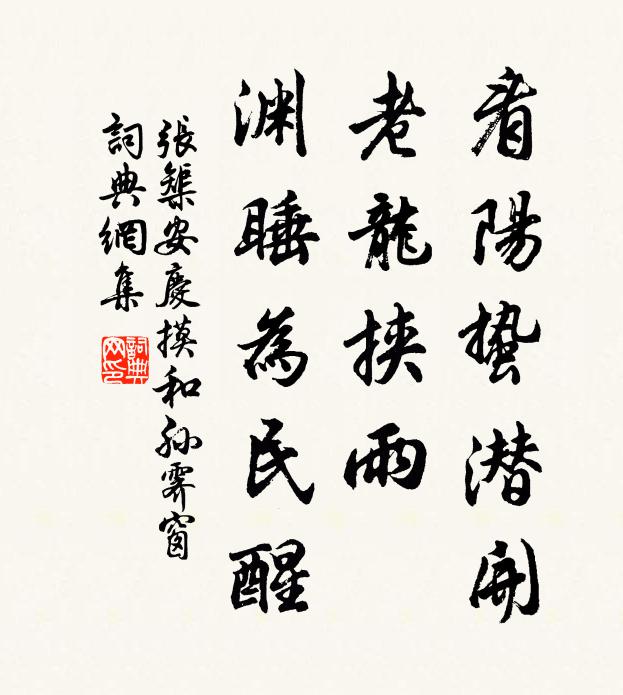 看陽蟄潜開
老龍挾雨
淵睡為民醒
張榘安慶摸和孫霽窗
詞典網集
詞典网印